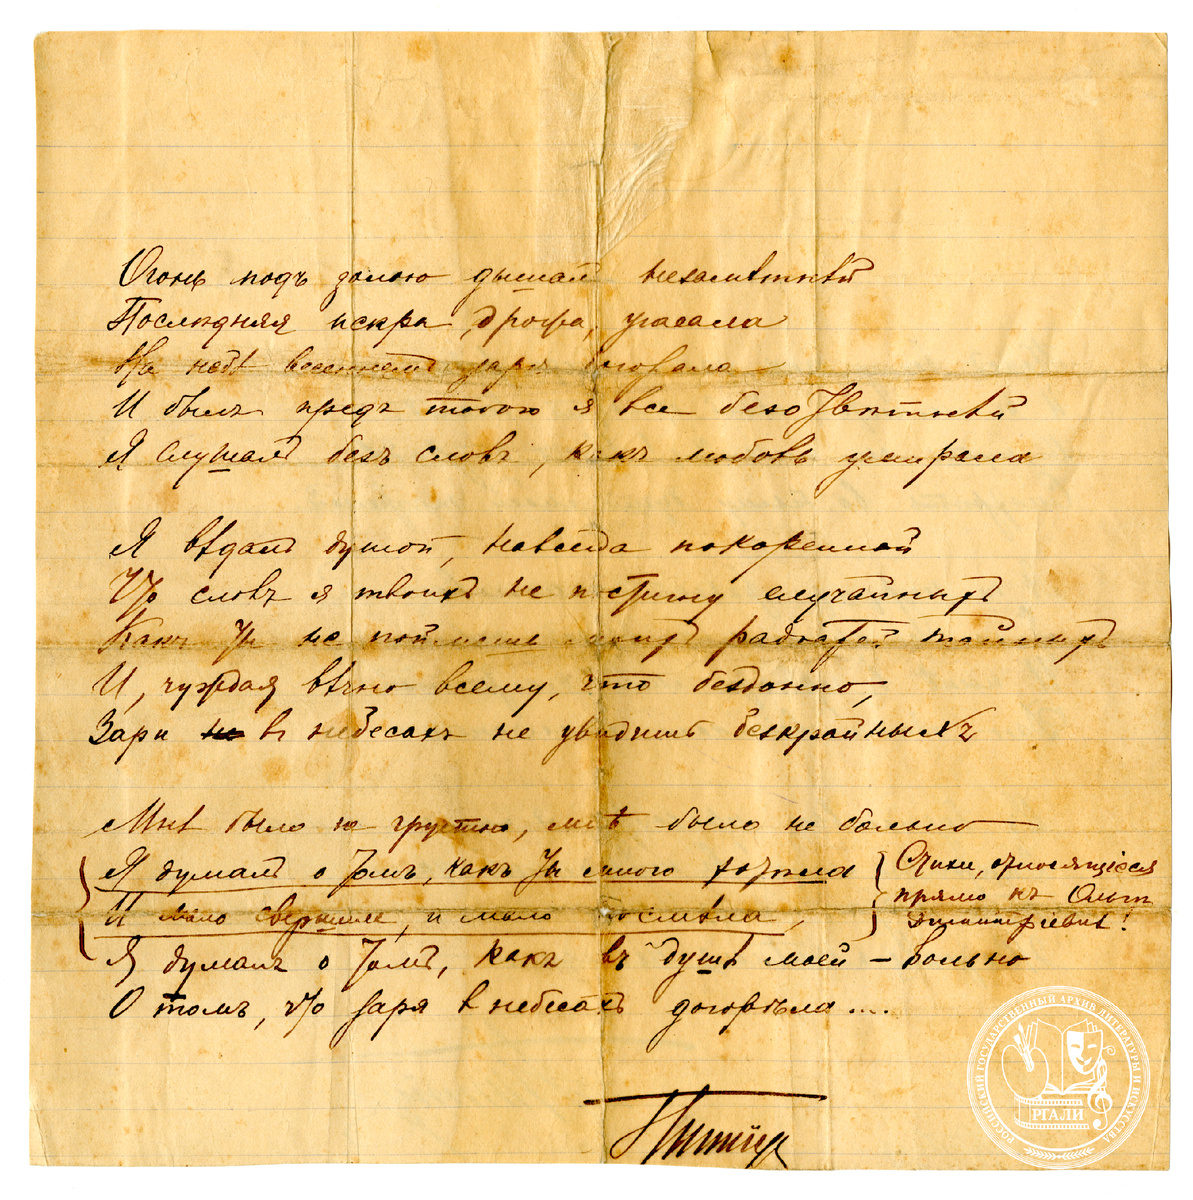 Огонь подъ золою дышал незамѣтнѣй
Послѣдняя искра, дрожа, угасала
На небѣ весеннемъ заря догорала
И былъ предъ тобою я все безотвѣтнѣй
Я слушалъ безъ словъ, какъ любовь умирала
Я вѣдалъ душой, навсегда покоренной
Что словъ я твоихъ не постигну случайныхъ
Какъ ты не поймешь моихъ радостей тайныхъ
И, чуждая вѣчно всему, что бездонно,
Зари въ небесахъ не увидишь безкрайныхъ
Мнѣ было не грустно, мнѣ было не больно
Я думалъ о томъ, какъ ты много хотѣла
И мало свершила, и мало посмѣла,
Стихи, относящіеся
прямо къ Ольгѣ
Димитріевнѣ!
Я думалъ о томъ, какъ въ душѣ моей – вольно
О томъ, что заря в небесахъ догорѣла....
РОССИЙСКИЙ ГОСУДАРСТВЕННЫЙ АРХИВ ЛИТЕРАТУРЫ И ИСКУССТВА
РГАЛИ